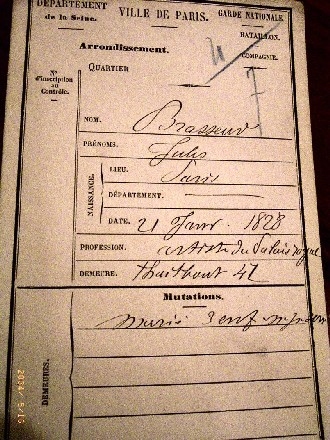 DÉPARTEMENT VILLE DE PARIS. GARDE NATIONALE
de la Seine.
BATAILLON.
Arrondissement.
COMPAGNIE.
QUARTIER
7
N°
d'inscription
au
Contrôle.
NOM. Brasseur
PRÉNOMS. Jules
NAISSANCE.
LIEU. Paris
DÉPARTEMENT.
DATE. 21 Janv. 1828
PROFESSION. artiste du Palais royal
DEMEURE. Thaitbout 41
Mutations.
DEMEURES.
2034/5/15